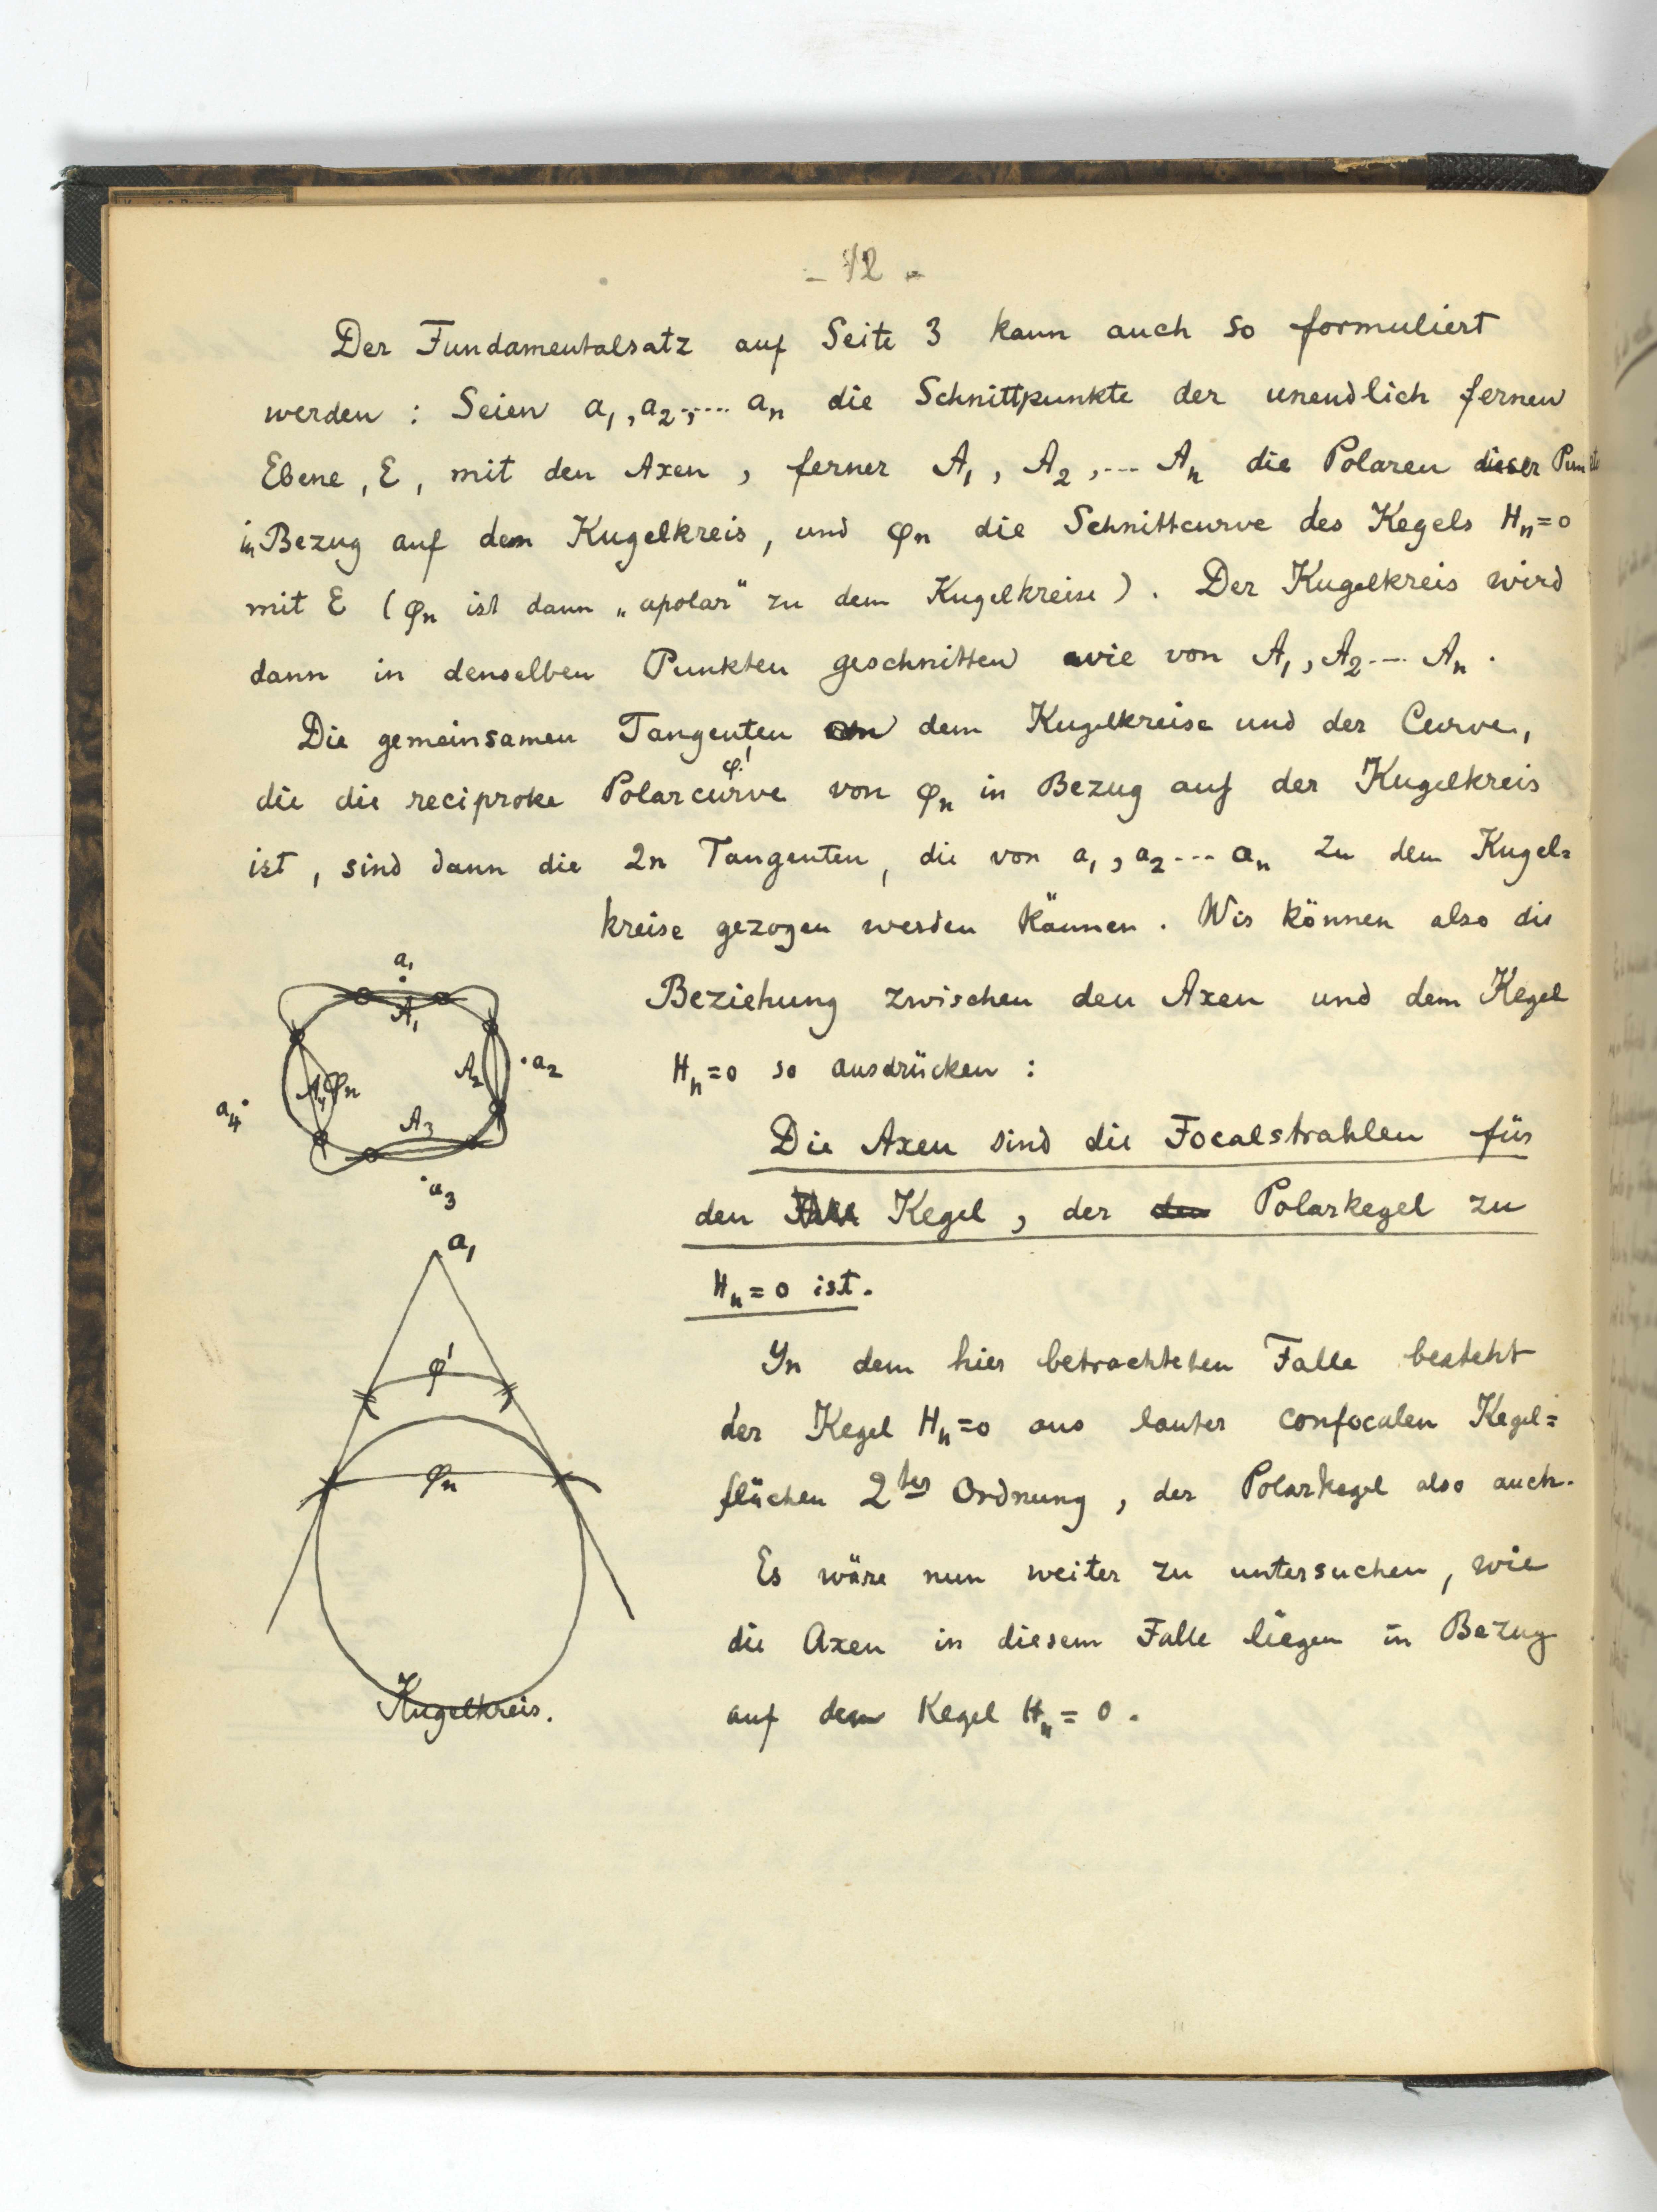 - 12 -
Der Fundamentalsatz auf Seite 3 kann auch so formuliert
werden : Seien a₁, a₂, .... aₙ die Schnittpunkte der unendlich fernen
Ebene, E, mit den Axen, ferner A₁, A₂, --- Aₙ die Polaren dieser Punkte
in Bezug auf dem Kugelkreis, und φₙ die Schnittcurve des Kegels Hₙ=0
mit E (φₙ ist dann „apolar" zu dem Kugelkreise). Der Kugelkreis wird
dann in denselben Punkten geschnitten wie von A₁, A₂ --- Aₙ.
Die gemeinsamen Tangenten dem Kugelkreise und der Curve,
φ'
die die reciproke Polarcurve von φₙ in Bezug auf der Kugelkreis
ist, sind dann die 2n Tangenten, die von a₁, a₂ --- aₙ zu dem Kugel=
kreise gezogen werden können. Wir können also die
Beziehung zwischen den Axen und dem Kegel
Hₙ=0 so ausdrücken :
Die Axen sind die Focalstrahlen für
den Kegel, der den Polarkegel zu
Hₙ=0 ist.
In dem hier betrachteten Falle besteht
der Kegel Hₙ=0 aus lauter confocalen Kegel=
flächen 2ter Ordnung, der Polarkegel also auch.
Es wäre nun weiter zu untersuchen, wie
die Axen in diesem Falle liegen in Bezug
auf dem Kegel Hₙ = 0.
a₁
A₁
A₂
a₂
A₄
φₙ
a₄
A₃
a₃
a₁
φ'
φₙ
Kugelkreis.